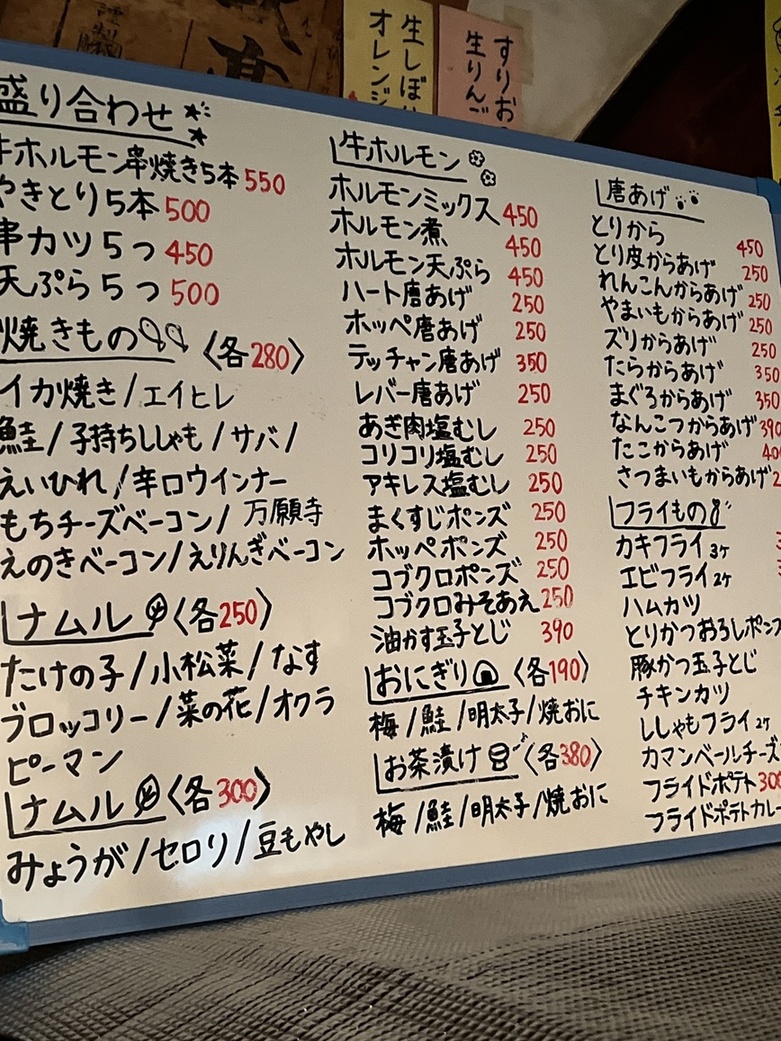 盛り合わせ
牛ホルモン串焼き5本 550
やきとり5本 500
串カツ5つ 450
天ぷら5つ 500
焼きもの〈各280〉
イカ焼き/エイヒレ
鮭/子持ちししゃも/サバ/
えいひれ/辛口ウインナー
もちチーズベーコン/万願寺
えのきベーコン/えりんぎベーコン
ナムル〈各250〉
たけの子/小松菜/なす
ブロッコリー/菜の花/オクラ
ピーマン
ナムル〈各300〉
みょうが/セロリ/豆もやし
牛ホルモン
ホルモンミックス 450
ホルモン煮 450
ホルモン天ぷら 450
ハート唐あげ 250
ホッペ唐あげ 250
テッチャン唐あげ 350
レバー唐あげ 250
あぎ肉塩むし 250
コリコリ塩むし 250
アキレス塩むし 250
まくすじポンズ 250
ホッペポンズ 250
コブクロポンズ 250
コブクロみそあえ 250
油かす玉子とじ 390
おにぎり〈各190〉
梅/鮭/明太子/焼おに
お茶漬け〈各380〉
梅/鮭/明太子/焼おに
唐あげ
とりから 450
とり皮からあげ 250
れんこんからあげ 250
やまいもからあげ 250
ズリからあげ 250
たらからあげ 350
まぐろからあげ 350
なんこつからあげ 390
たこからあげ
さつまいもからあげ
フライもの
カキフライ 3ケ
エビフライ 2ケ
ハムカツ
とりかつおろしポンズ
豚かつ玉子とじ
チキンカツ
ししゃもフライ 2ケ
カマンベールチーズ
フライドポテト
フライドポテトカレー
オレンジ
生しぼ
生りんご
すりお